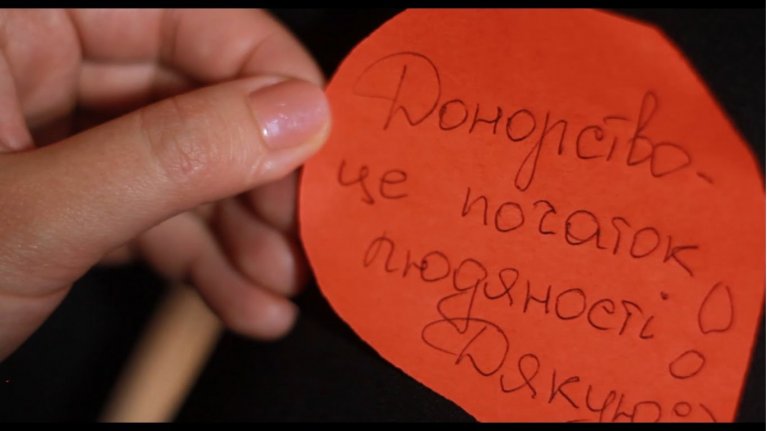 Донорство-
це початок
людяності!
Дякую